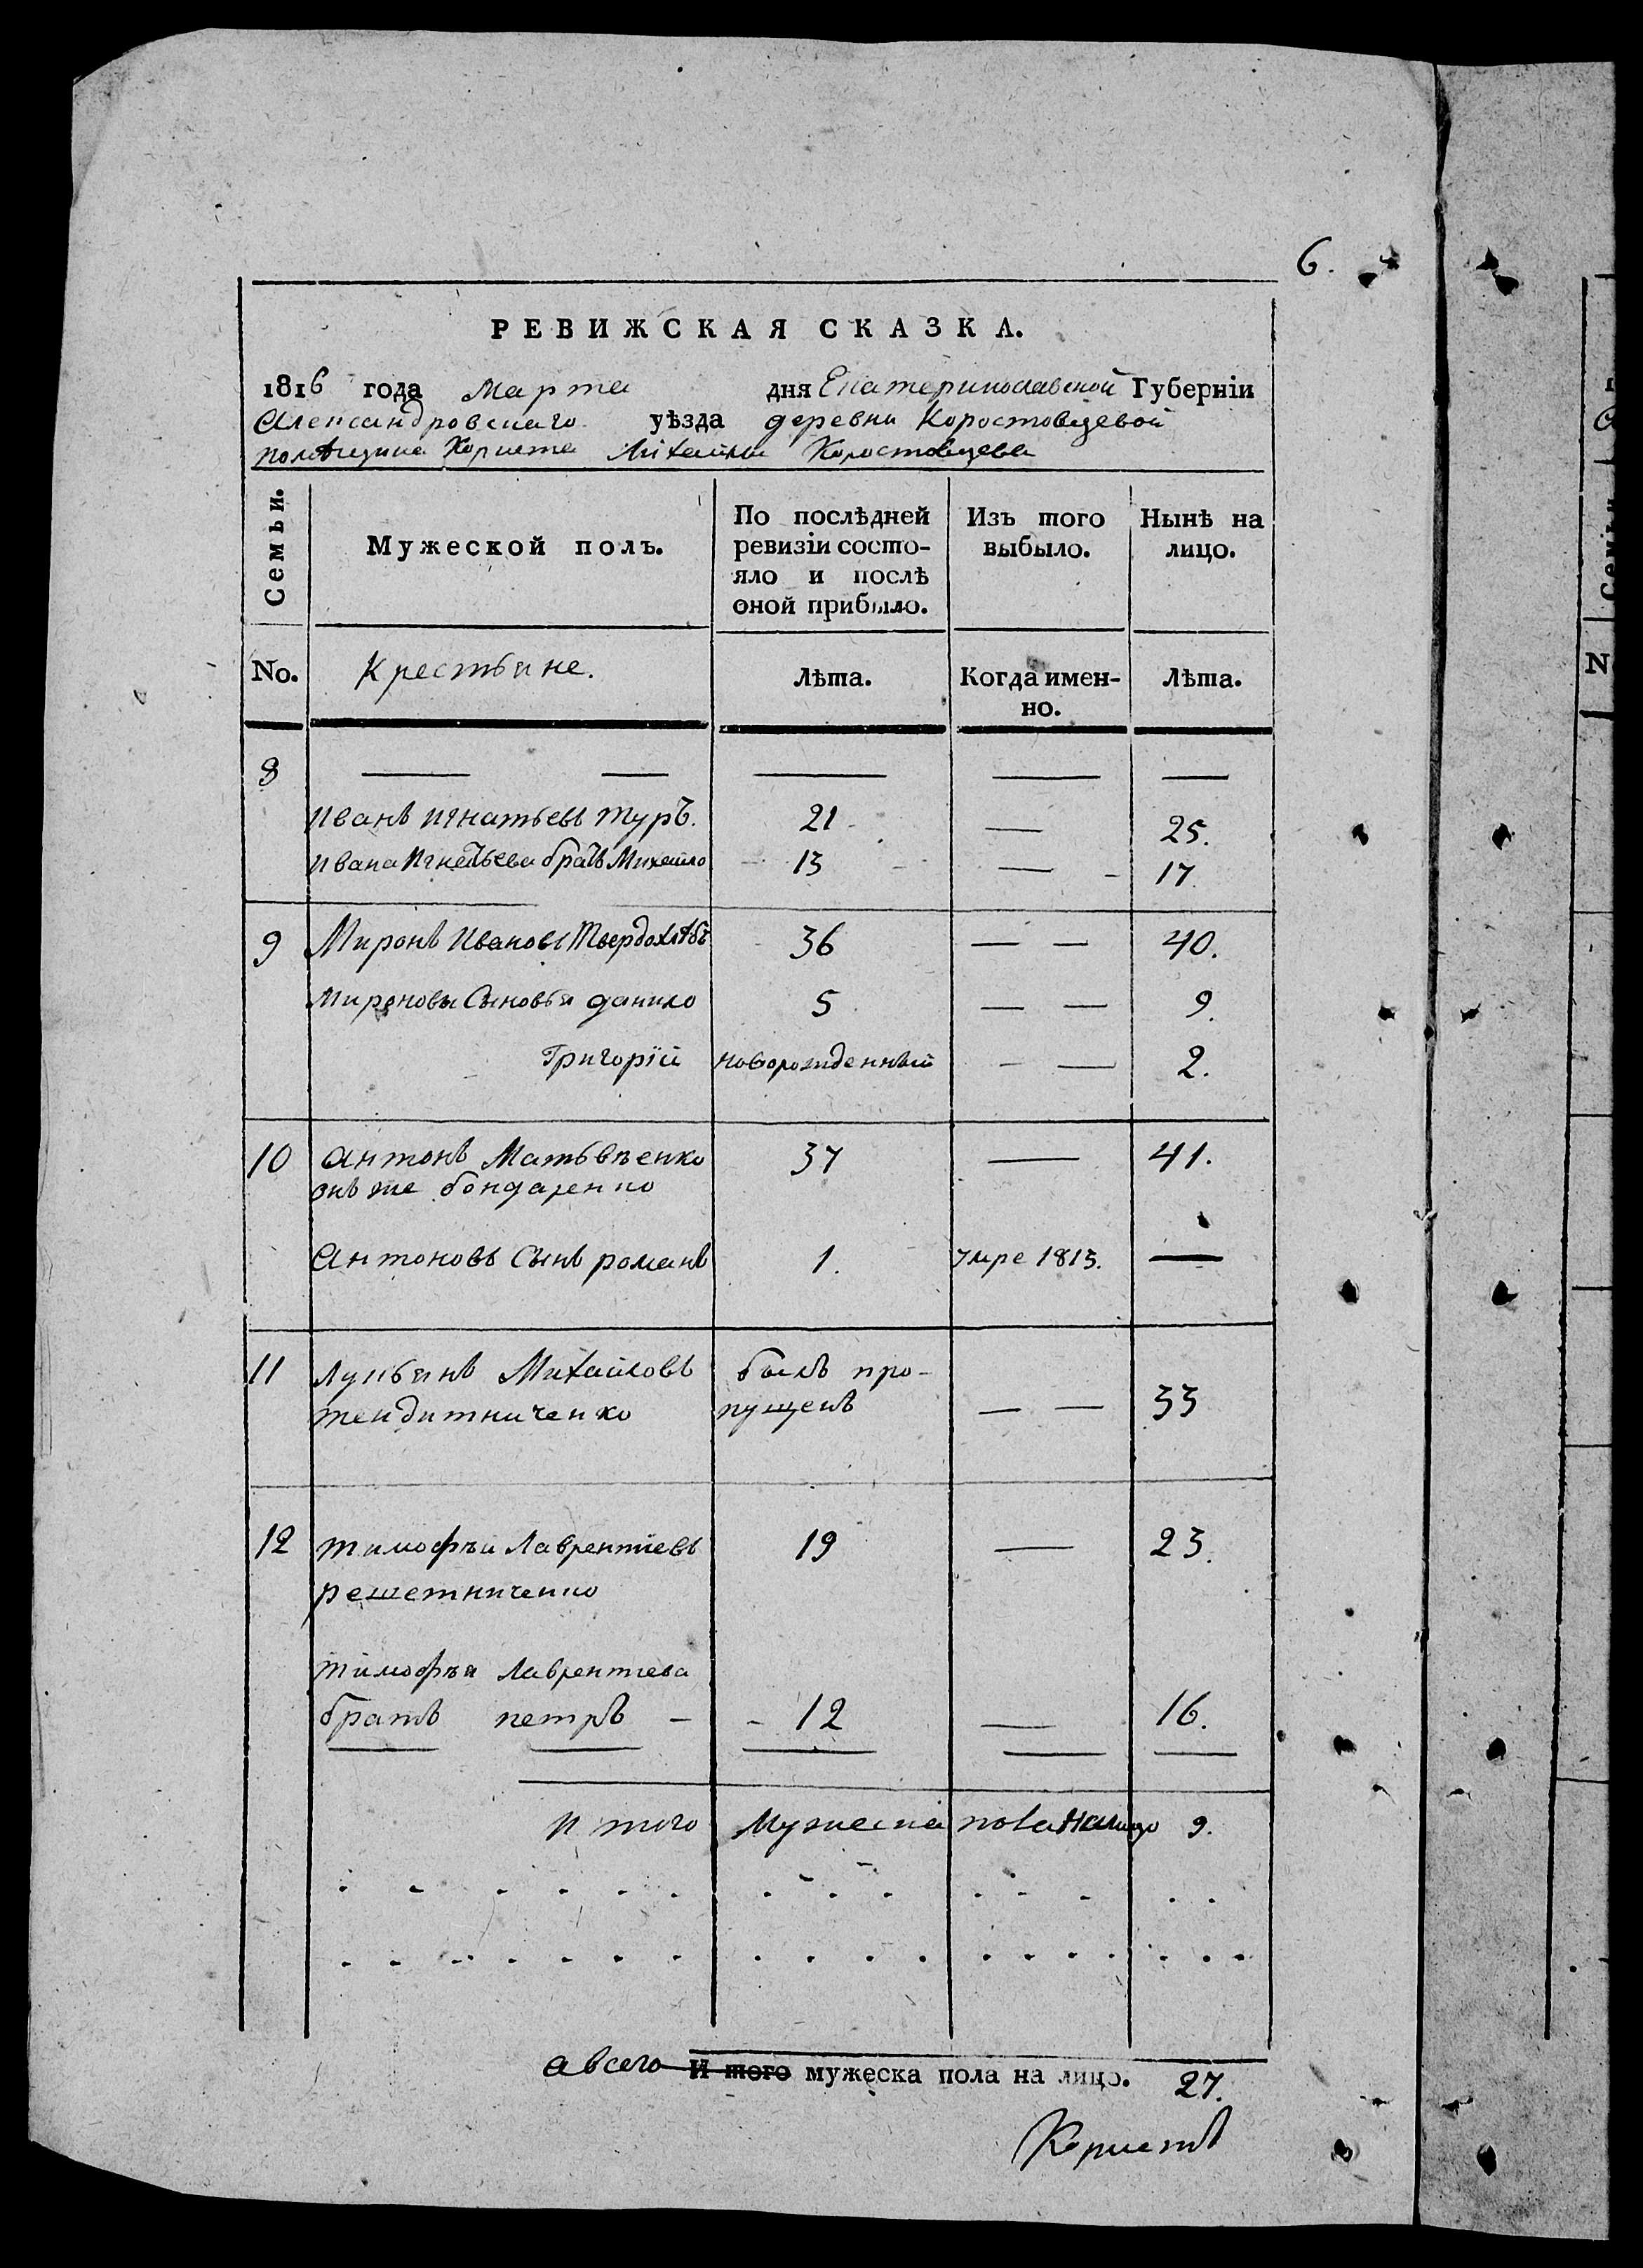 6.
РЕВИЖСКАЯ СКАЗКА.
1816 года Марта дня Екатеринославской Губерніи
Александровского уѣзда деревни Коростовцевой
помѣщика Корнета Михайла Коростовцева
Семьи. Мужеской полъ. По послѣдней ревизіи состояло и послѣ оной прибыло. Изъ того выбыло. Нынѣ на лицо.
No. Крестьяне. Лѣта. Когда именно. Лѣта.
8 — — — — —
Иванъ Игнатьевъ Туръ. 21 — 25.
Ивана Игнатьева братъ Михайло 13 — 17.
9 Миронъ Ивановъ Твердохлѣбъ 36 — — 40.
Мироновы Сыновья данило 5 — — 9.
Григорїй новорожденный — — 2.
10 Антонъ Матьвѣенко 37 — 41.
онъ же бондаренко
Антоновъ Сынъ романъ 1. умре 1813. —
11 Лукьянъ Михайловъ былъ про-
тендитниченко пущенъ — — 33
12 тимофѣй Лаврентіевъ 19 — 23.
решетниченко
тимофѣя Лаврентиева
братъ петръ - - 12 — 16.
Итого Мужеска пола налицо 9.
авсего И того мужеска пола на лицо. 27.
Корнетъ